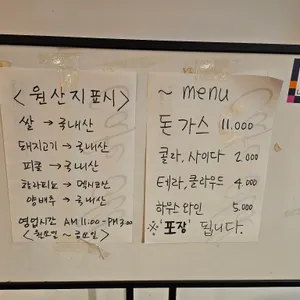 <원산지표시>
쌀 → 국내산
돼지고기 → 국내산
피클 → 국내산
할라피뇨 → 멕시코산
양배추 → 국내산
영업시간 AM 11:00 - PM 3:00
<월요일 ~ 금요일>
~ menu
돈가스 11.000
콜라, 사이다 2000
테라, 클라우드 4000
하우스 와인 5.000
※ '포장' 됩니다.